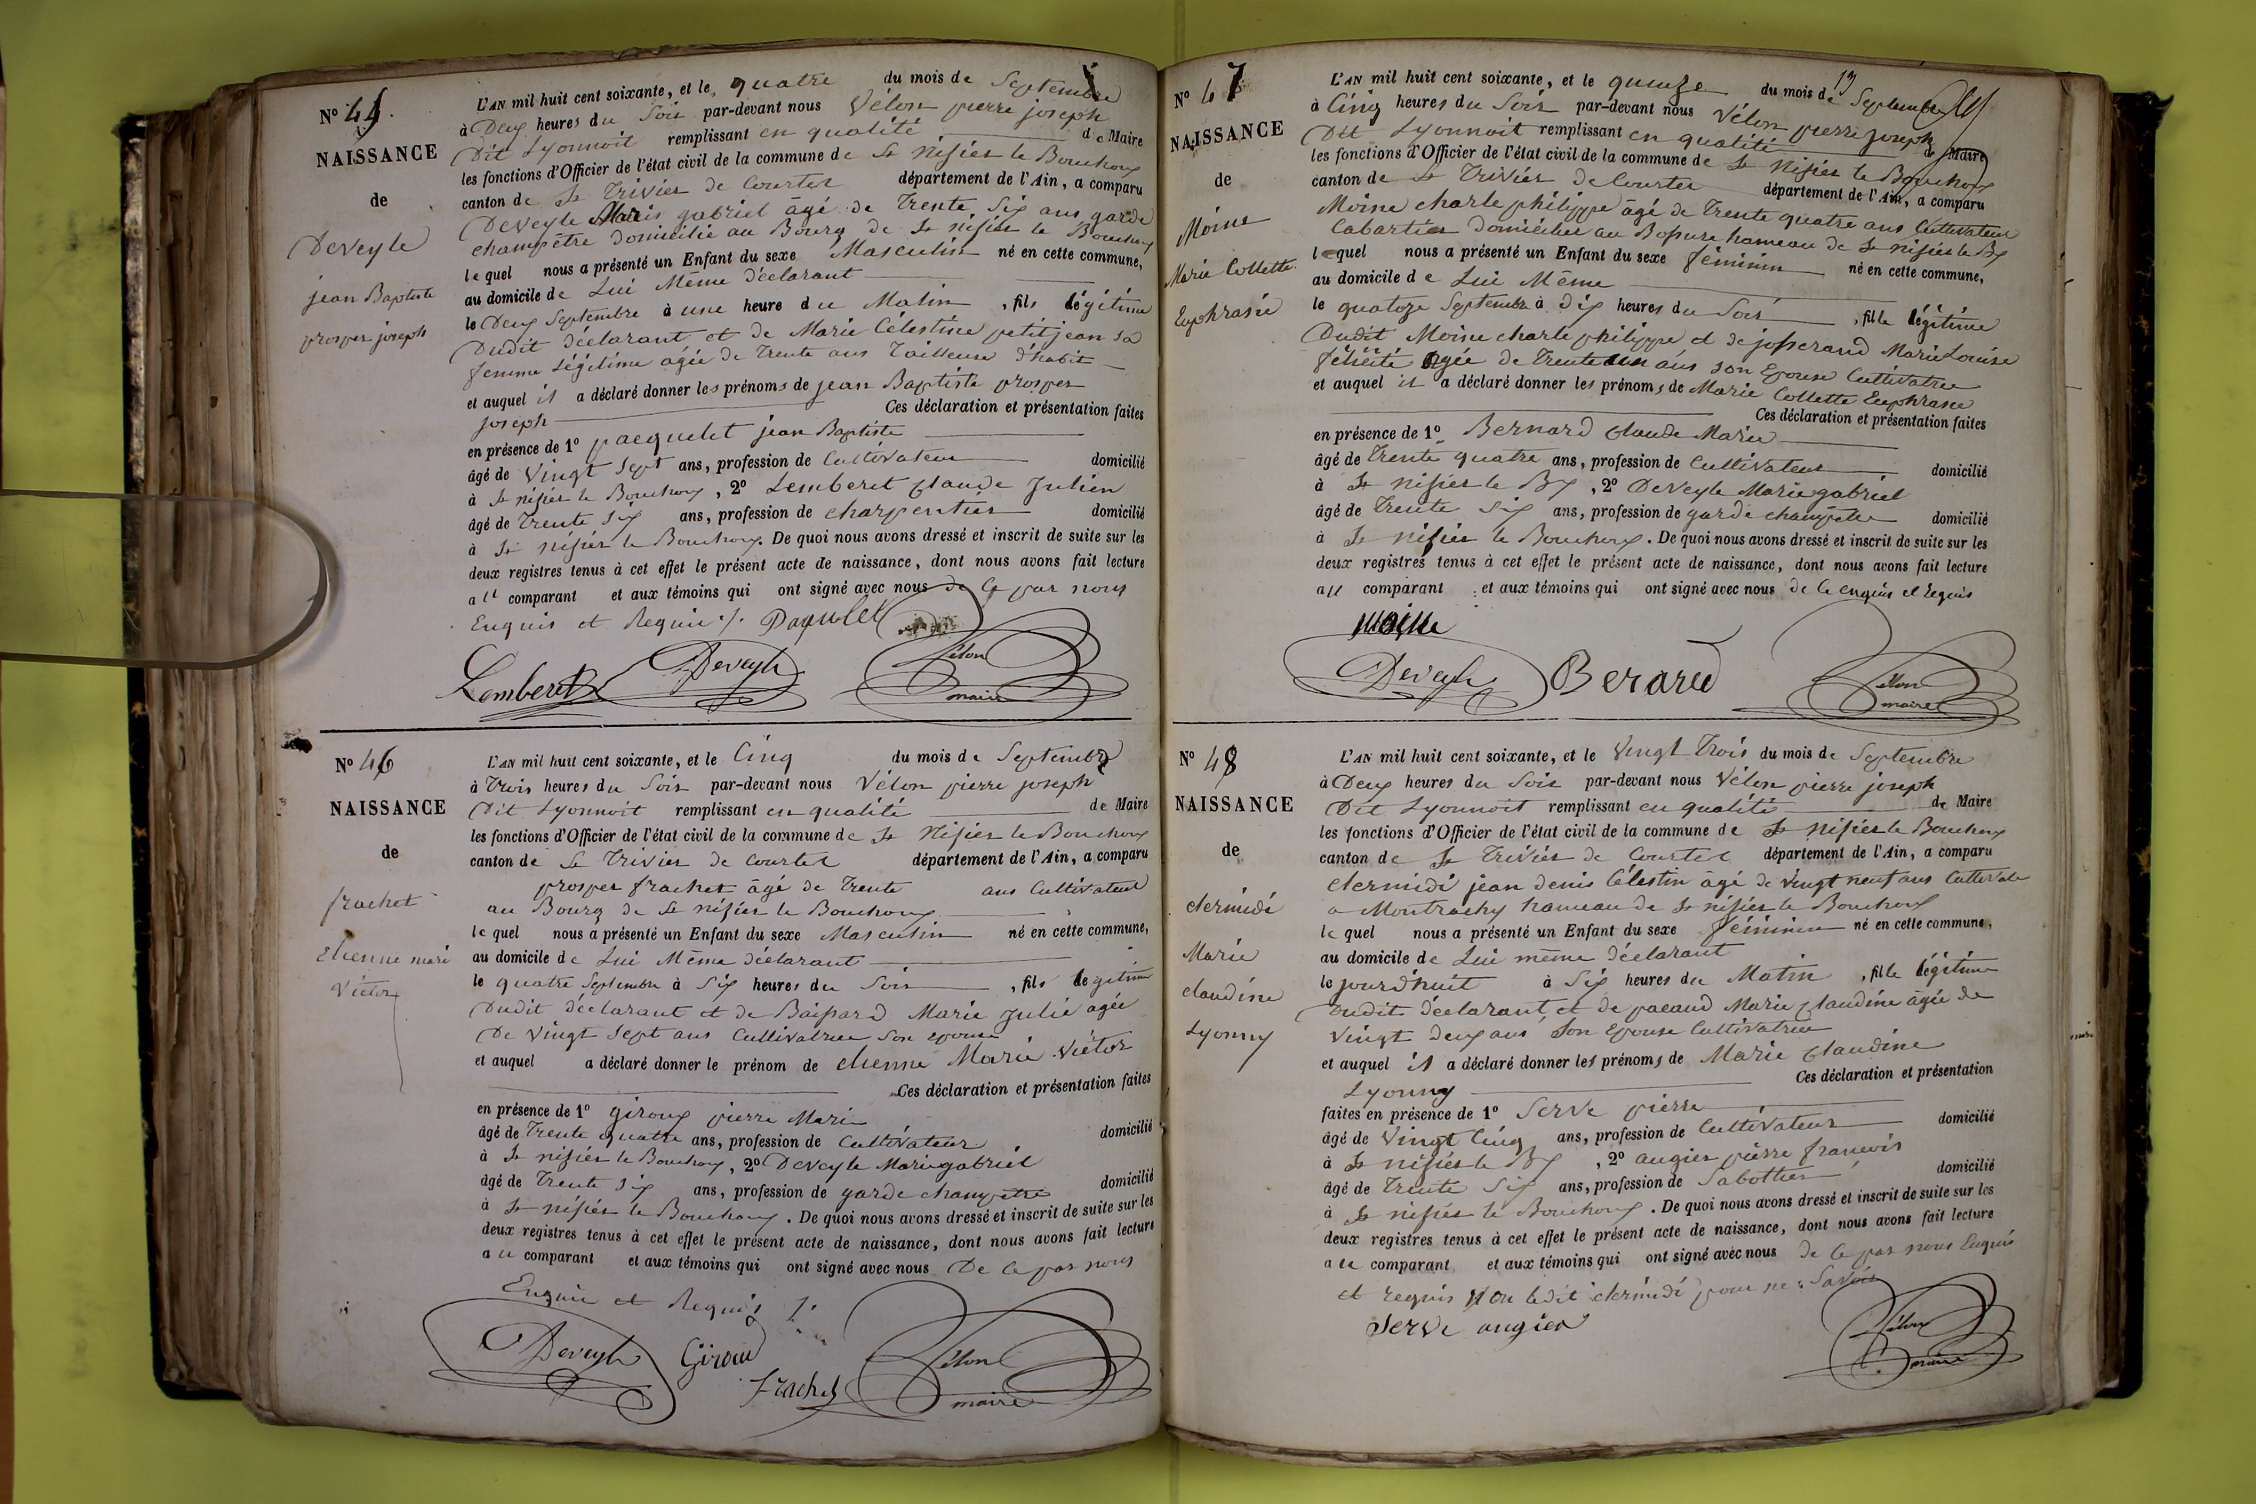 N° 45.
NAISSANCE
de
Deveyle
jean Baptiste
prosper joseph
L'AN mil huit cent soixante, et le quatre du mois de Septembre
à Deux heures du Soir par-devant nous Vélon pierre joseph
Dit Lyonnoit remplissant en qualité de Maire
les fonctions d'Officier de l'état civil de la commune de St Nisier le Bouchoux
canton de St Trivier de Courtes département de l'Ain, a comparu
Deveyle Marie gabriel âgé de Trente Six ans garde
champêtre domicilié au Bourg de St nisier le Bouchoux
lequel nous a présenté un Enfant du sexe Masculin né en cette commune,
au domicile de Lui Même déclarant
le Deux Septembre à une heure du Matin, fils légitime
Dudit déclarant et de Marie Célestine petitjean sa
femme Légitime agée de Trente ans Tailleuse d'habit
et auquel il a déclaré donner les prénoms de jean Baptiste prosper
joseph Ces déclaration et présentation faites
en présence de 1° pacquelet jean Baptiste
âgé de Vingt Sept ans, profession de Cultivateur domicilié
à St nisier le Bouchoux, 2° Lemberet Claude Julien
âgé de Trente Six ans, profession de charpentier domicilié
à St nisier le Bouchoux. De quoi nous avons dressé et inscrit de suite sur les
deux registres tenus à cet effet le présent acte de naissance, dont nous avons fait lecture
au comparant et aux témoins qui ont signé avec nous de ce par nous
Enquis et Requis ./.
Lemberet Deveyle Vélon
maire
N° 46
NAISSANCE
de
frachet
Etienne marie
Victor
L'AN mil huit cent soixante, et le Cinq du mois de Septembre
à Trois heures du Soir par-devant nous Vélon pierre joseph
Dit Lyonnoit remplissant en qualité de Maire
les fonctions d'Officier de l'état civil de la commune de St Nisier le Bouchoux
canton de St Trivier de Courtes département de l'Ain, a comparu
prosper frachet âgé de Trente ans Cultivateur
au Bourg de St nisier le Bouchoux
lequel nous a présenté un Enfant du sexe Masculin né en cette commune,
au domicile de Lui Même déclarant
le quatre Septembre à Six heures du Soir, fils légitime
Dudit déclarant et de Marie Julie agée
De Vingt Sept ans Cultivatrice Son epouse
et auquel a déclaré donner le prénom de etienne Marie Victor
Ces déclaration et présentation faites
en présence de 1° giroux pierre Marie
âgé de Trente quatre ans, profession de Cultivateur domicilié
à St nisier le Bouchoux, 2° Deveyle Marie gabriel
âgé de Trente Six ans, profession de garde champêtre domicilié
à St nisier le Bouchoux. De quoi nous avons dressé et inscrit de suite sur les
deux registres tenus à cet effet le présent acte de naissance, dont nous avons fait lecture
au comparant et aux témoins qui ont signé avec nous De ce par nous
Enquis et Requis ./.
Deveyle Giroud Vélon
Frachet maire
N° 47
NAISSANCE
de
Moine
Marie Collette
Euphrasie
L'AN mil huit cent soixante, et le quinze du mois de Septembre
à Cinq heures du Soir par-devant nous Vélon pierre joseph
Dit Lyonnoit remplissant en qualité de Maire
les fonctions d'Officier de l'état civil de la commune de St Nisier le Bouchoux
canton de St Trivier de Courtes département de l'Ain, a comparu
Moine charle philippe âgé de Trente quatre ans Cultivateur
Cabartier domicilier au hameau de St nisier le Bx
lequel nous a présenté un Enfant du sexe féminin né en cette commune,
au domicile de Lui Même
le quatoze Septembre à Dix heures du Soir, fille légitime
Dudit Moine charle philippe et de josserand Marie Louise
félicité agée de Trente ans son epouse Cultivatrice
et auquel il a déclaré donner les prénoms de Marie Collette Euphrasie
Ces déclaration et présentation faites
en présence de 1° Bernard Claude Marie
âgé de Trente quatre ans, profession de Cultivateur domicilié
à St nisier le Bx, 2° Deveyle Marie gabriel
âgé de Trente Six ans, profession de garde champêtre domicilié
à St nisier le Bouchoux. De quoi nous avons dressé et inscrit de suite sur les
deux registres tenus à cet effet le présent acte de naissance, dont nous avons fait lecture
au comparant et aux témoins qui ont signé avec nous de ce enquis et Requis
moine
Deveyle Berard Vélon
maire
N° 48
NAISSANCE
de
clermidi
Marie
claudine
Lyonny
L'AN mil huit cent soixante, et le Vingt Trois du mois de Septembre
à Deux heures du Soir par-devant nous Vélon pierre joseph
Dit Lyonnoit remplissant en qualité de Maire
les fonctions d'Officier de l'état civil de la commune de St nisier le Bouchoux
canton de St Trivier de Courtes département de l'Ain, a comparu
clermidi jean denis Célestin âgé de vingt neuf ans
a Montrachy hameau de St nisier le Bouchoux
lequel nous a présenté un Enfant du sexe féminin né en cette commune,
au domicile de Lui même déclarant
le jourd'huit à Six heures du Matin, fille légitime
Dudit déclarant et de pacaud Marie Claudine âgée de
Vingt deux ans Son Epouse Cultivatrice
et auquel il a déclaré donner les prénoms de Marie Claudine
Lyonny Ces déclaration et présentation
faites en présence de 1° Serve pierre
âgé de Vingt Cinq ans, profession de Cultivateur domicilié
à St nisier le Bx, 2° augier pierre francois
âgé de Trente Six ans, profession de Sabottier domicilié
à St nisier le Bouchoux. De quoi nous avons dressé et inscrit de suite sur les
deux registres tenus à cet effet le présent acte de naissance, dont nous avons fait lecture
au comparant et aux témoins qui ont signé avec nous de ce par nous Enquis
et requis non ledit clermidi pour ne Savoir
Serve augier Vélon
maire